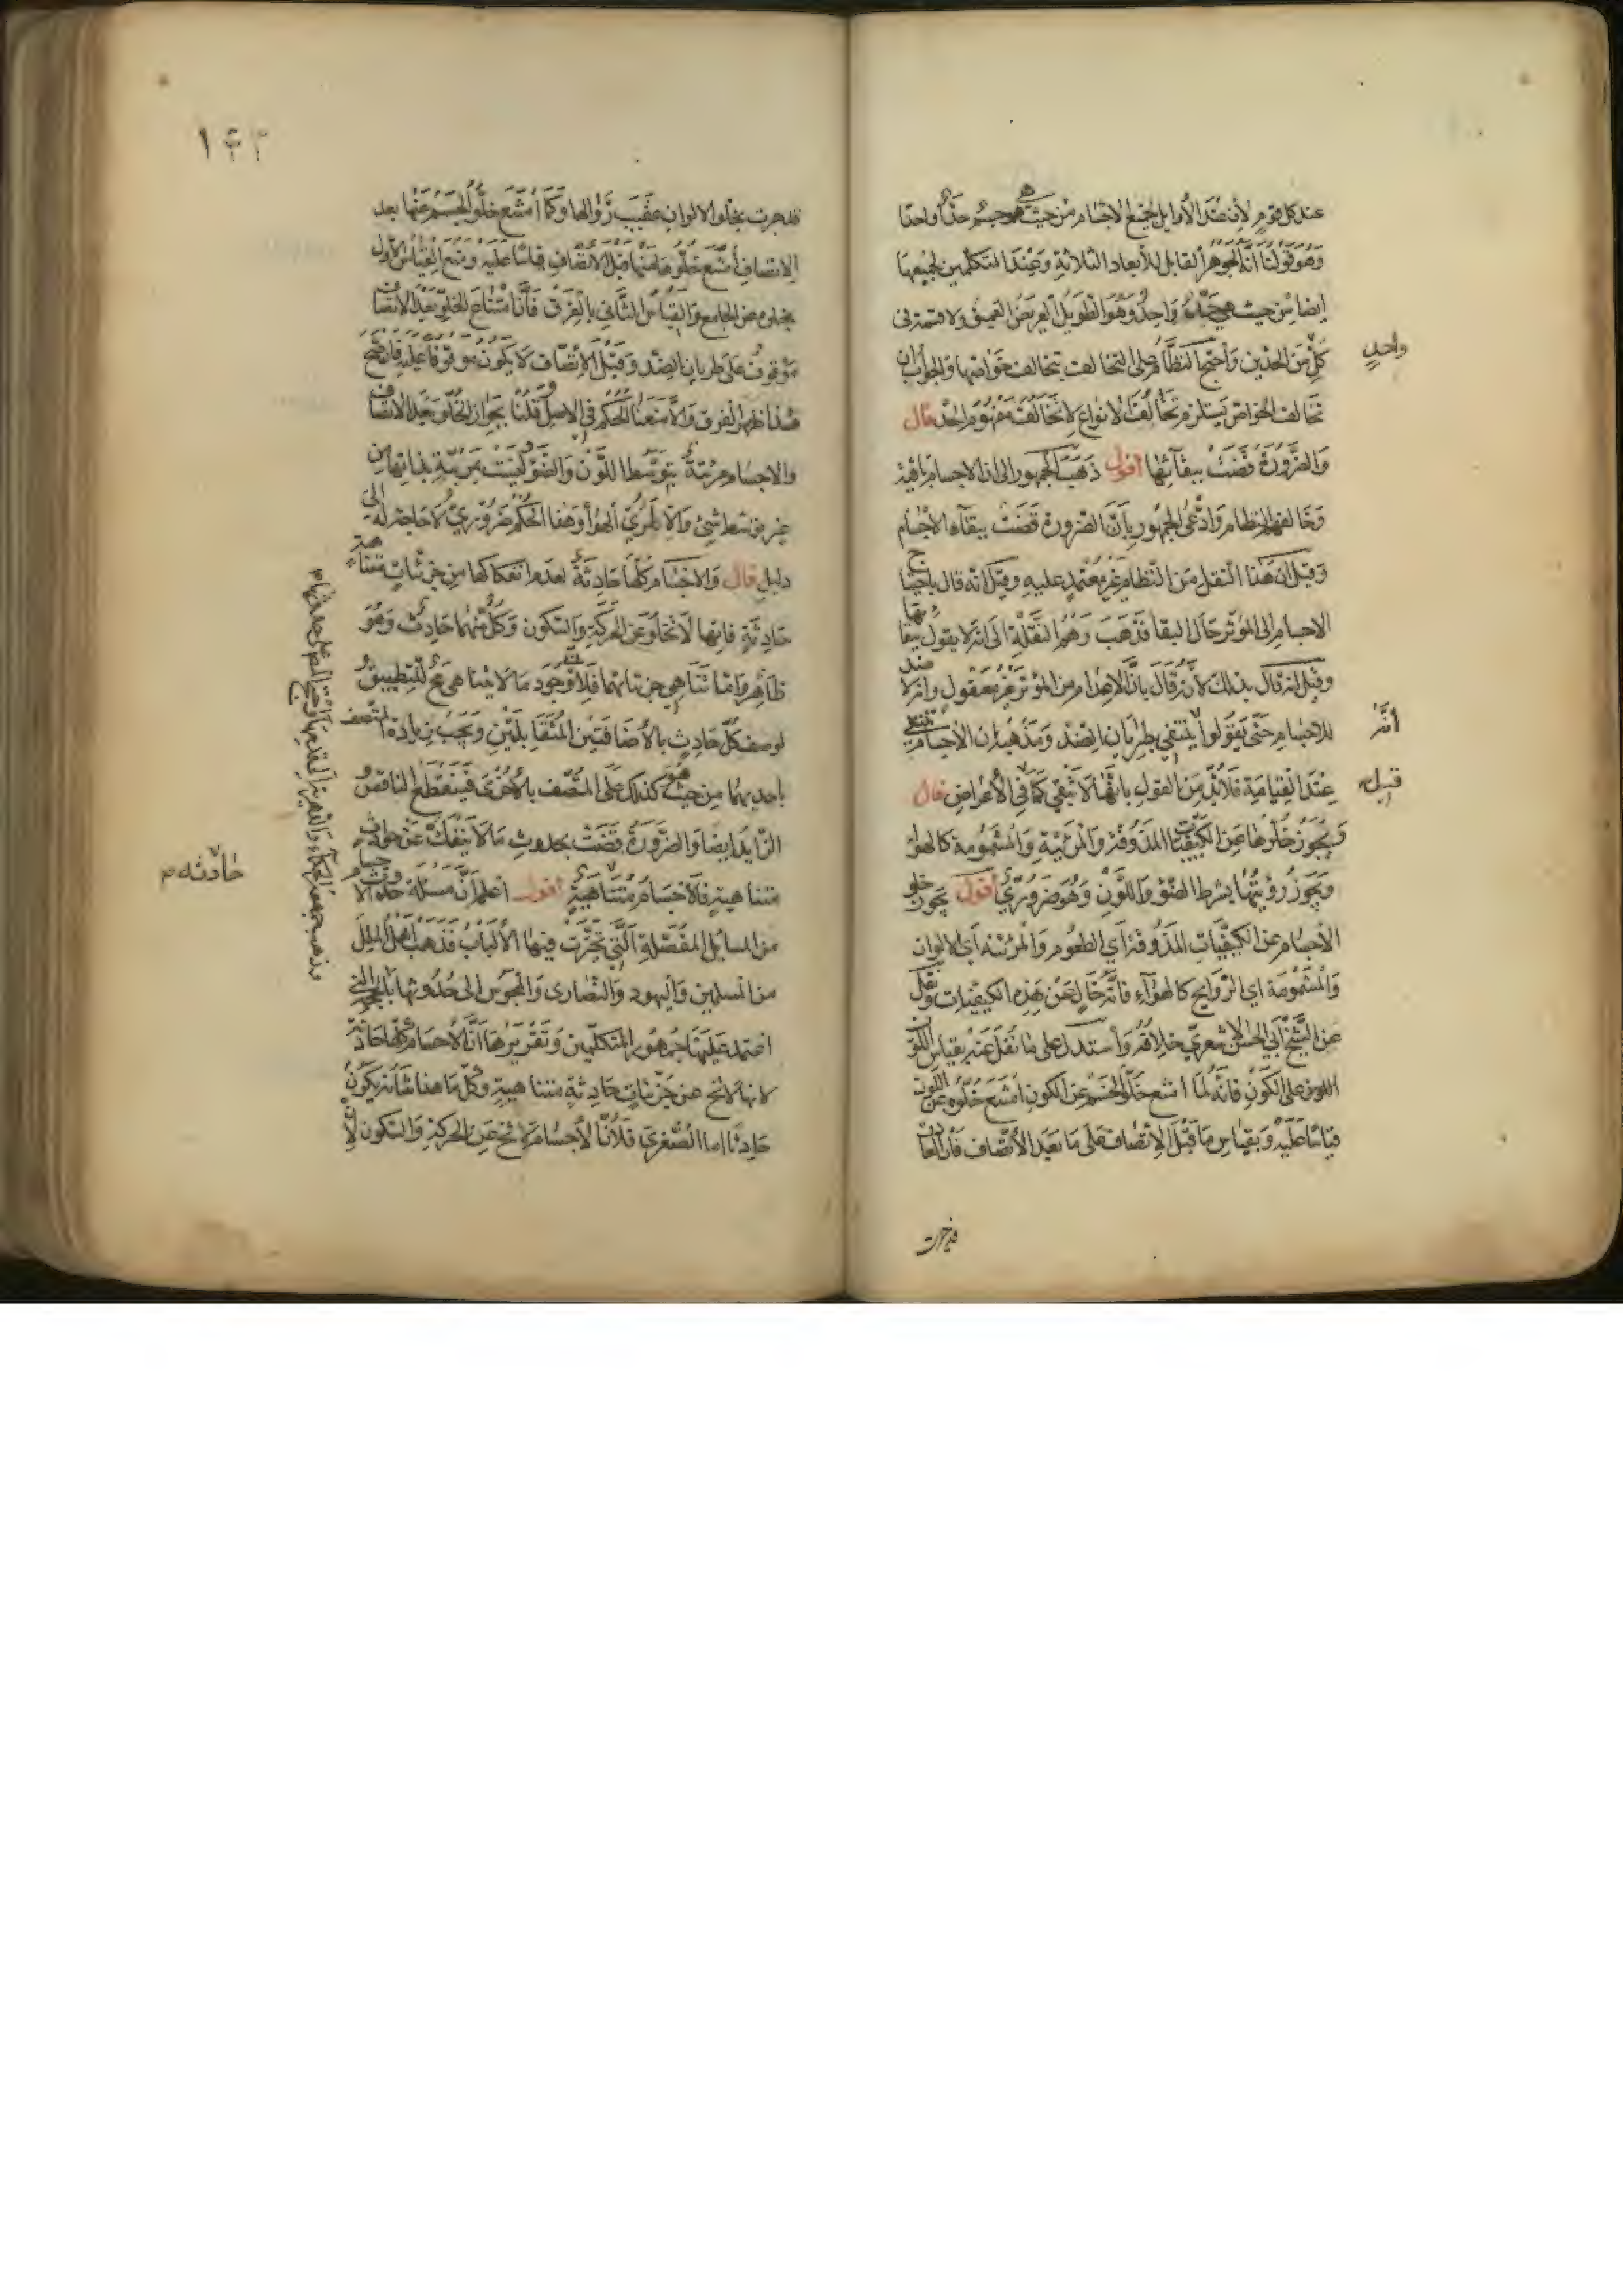 عند كل قوم لأن عند الأوايل لجميع الاجسام من حيث هو جسم حدا واحدا
وهو قولنا انه الجوهر القابل للأبعاد الثلاثة وعند المتكلمين لجميعها
ايضا من حيث هي حد واحد وهو الطويل العريض العميق ولا قسمة في
كل من الحدين واحتج النظام على التخالف بتخالف خواصها والجواب ان
واحد
تخالف الخواص يستلزم تخالف الانواع لا تخالف مفهوم الحد قال
والضرورة قضت ببقائها أقول ذهب الجمهور الى ان الاجسام باقية
وخالفهم النظام وادعى الجمهور بأن الضرورة قضت ببقاء الاجسام
وقيل ان هذا النقل من النظام غير معتمد عليه وقيل انه قال باحتياج
الاجسام الى المؤثر حال البقا فذهب وهم النقلة الى انه لا يقول ببقائها
وقيل انه قال بذلك لأنه قال بأن الاعدام من المؤثر غير معقول وانه لا ضد
للاجسام حتى يقولوا ينتفي بطريان الضد ومذهبه ان الاجسام تنتفي
أنه
عند القيامة فلا بد من القول بانها لا تبقى كما في الأعراض قال
قبيل
ويجوز خلوها عن الكيفيات المذوقة والمرئية والمشمومة كالهواء
ويجوز رؤيتها بشرط الضوء واللون وهو ضروري أقول يجوز خلو
الأجسام عن الكيفيات المذوقة أي الطعوم والمرئية أي الالوان
والمشمومة اي الروايح كالهواء فانه خال عن هذه الكيفيات ونقل
عن الشيخ أبي الحسن الاشعري خلافه وأستدل على ما نقل عنه بقياس اللون
اللون على الكون فانه لما امتنع خلو الجسم عن الكون امتنع خلوه عن اللون
قياسا عليه وبقياس ما قبل الاتصاف على ما بعد الأتصاف فان العادة
قد جرت
قد جرت بخلو الالوان عقيب زوالها وكما أمتنع خلو الجسم عنها بعد
الاتصاف أمتنع خلوها عنها قبل الاتصاف قياسا عليه ومنع القياس الأول
بخلوه عن الجامع والقياس الثاني بالفرق فأن امتناع الخلو بعد الاتصاف
موقوف على طريان الضد وقبل الاتصاف لا يكون موقوفا عليه فان صح
هذا ظهر الفرق والا منعنا الحكم في الاصل وقلنا بجواز الخلو بعد الاتصاف
والاجسام مرئية بتوسط اللون والضوء ليست مرئية بذاتها من
غير توسط شئ والا لمرئي الهوا وهذا الحكم ضروري لا حاجة له الى
دليل قال والاجسام كلها حادثة لعدم انفكاكها من جزئيات متناهية
حادثة فانها لا تخلو عن الحركة والسكون وكل منهما حادث وهو
ظاهر وأما تناهي جزئياتهما فلأن وجود ما لا يتناهى مح للتطبيق
لوصف كل حادث بالأضافتين المتقابلتين ويجب زيادة المتصف
باحديهما من حيث هو كذلك على المتصف بالأخرى فينقطع الناقص
الزايد ايضا والضرورة قضت بحدوث ما لا ينفك عن حوادث
متناهية فالأجسام متناهية أقول اعلم أن مسئلة حدوث الاجسام
حادثه م
من المسايل المفصلة التي تحيرت فيها الألباب فذهب أهل الملل
من المسلمين واليهود والنصارى والمجوس الى حدوثها بالحجة التي
اعتمد عليها جمهور المتكلمين وتقريرها ان الأجسام كلها حادثة
لانها لا تخ عن جزئيات حادثة متناهية وكل ما هذا شأنه يكون
حادثا اما الصغرى فلأن الأجسام لا تخ عن الحركة والسكون لأن